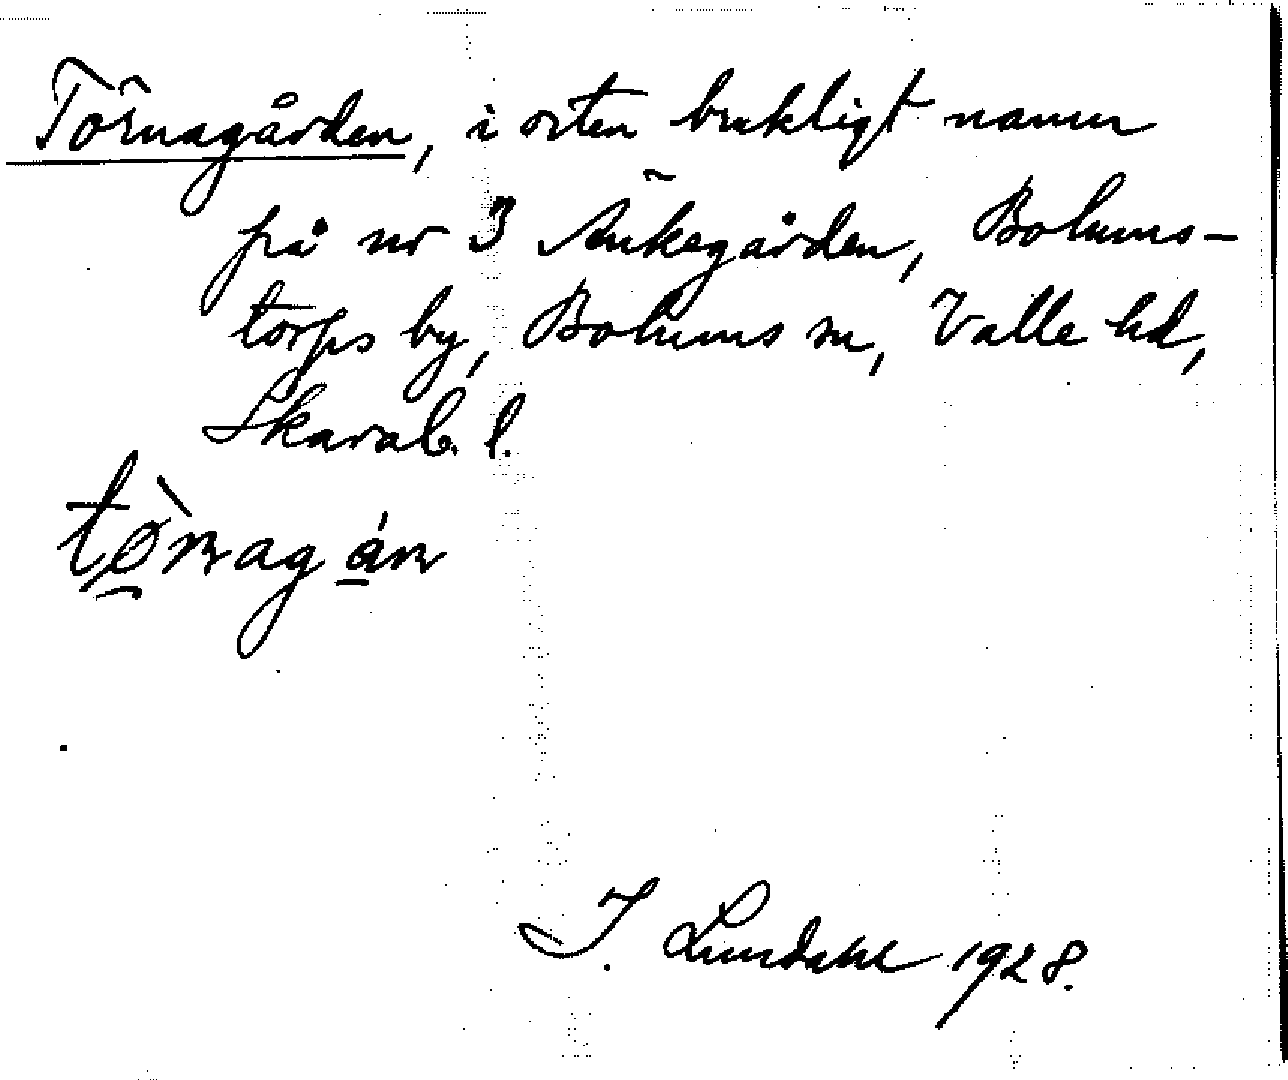 Törnagården, i orten brukligt namn
på nr 3 Änkegården, Bolums-
torps by, Bolums sn, Valle hd,
Skarab. l.
I. Lundahl 1928.